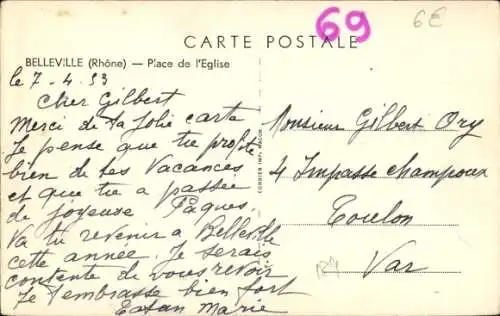 69
6€
CARTE POSTALE
BELLEVILLE (Rhône) — Place de l'Eglise
le 7-4.53
Cher Gilbert
Merci de ta Jolie carte
Je pense que tu profite
bien de tes Vacances
et que tu a passée
de joyeuse Pâques,
Va tu revenir a Belleville
cette année. Je serais
contente de vous revoir
Je t'embrasse bien fort
Marie
COMBIER IMP. MACON
Monsieur Gilbert Ory
4 Impasse Champoux
Toulon
Var